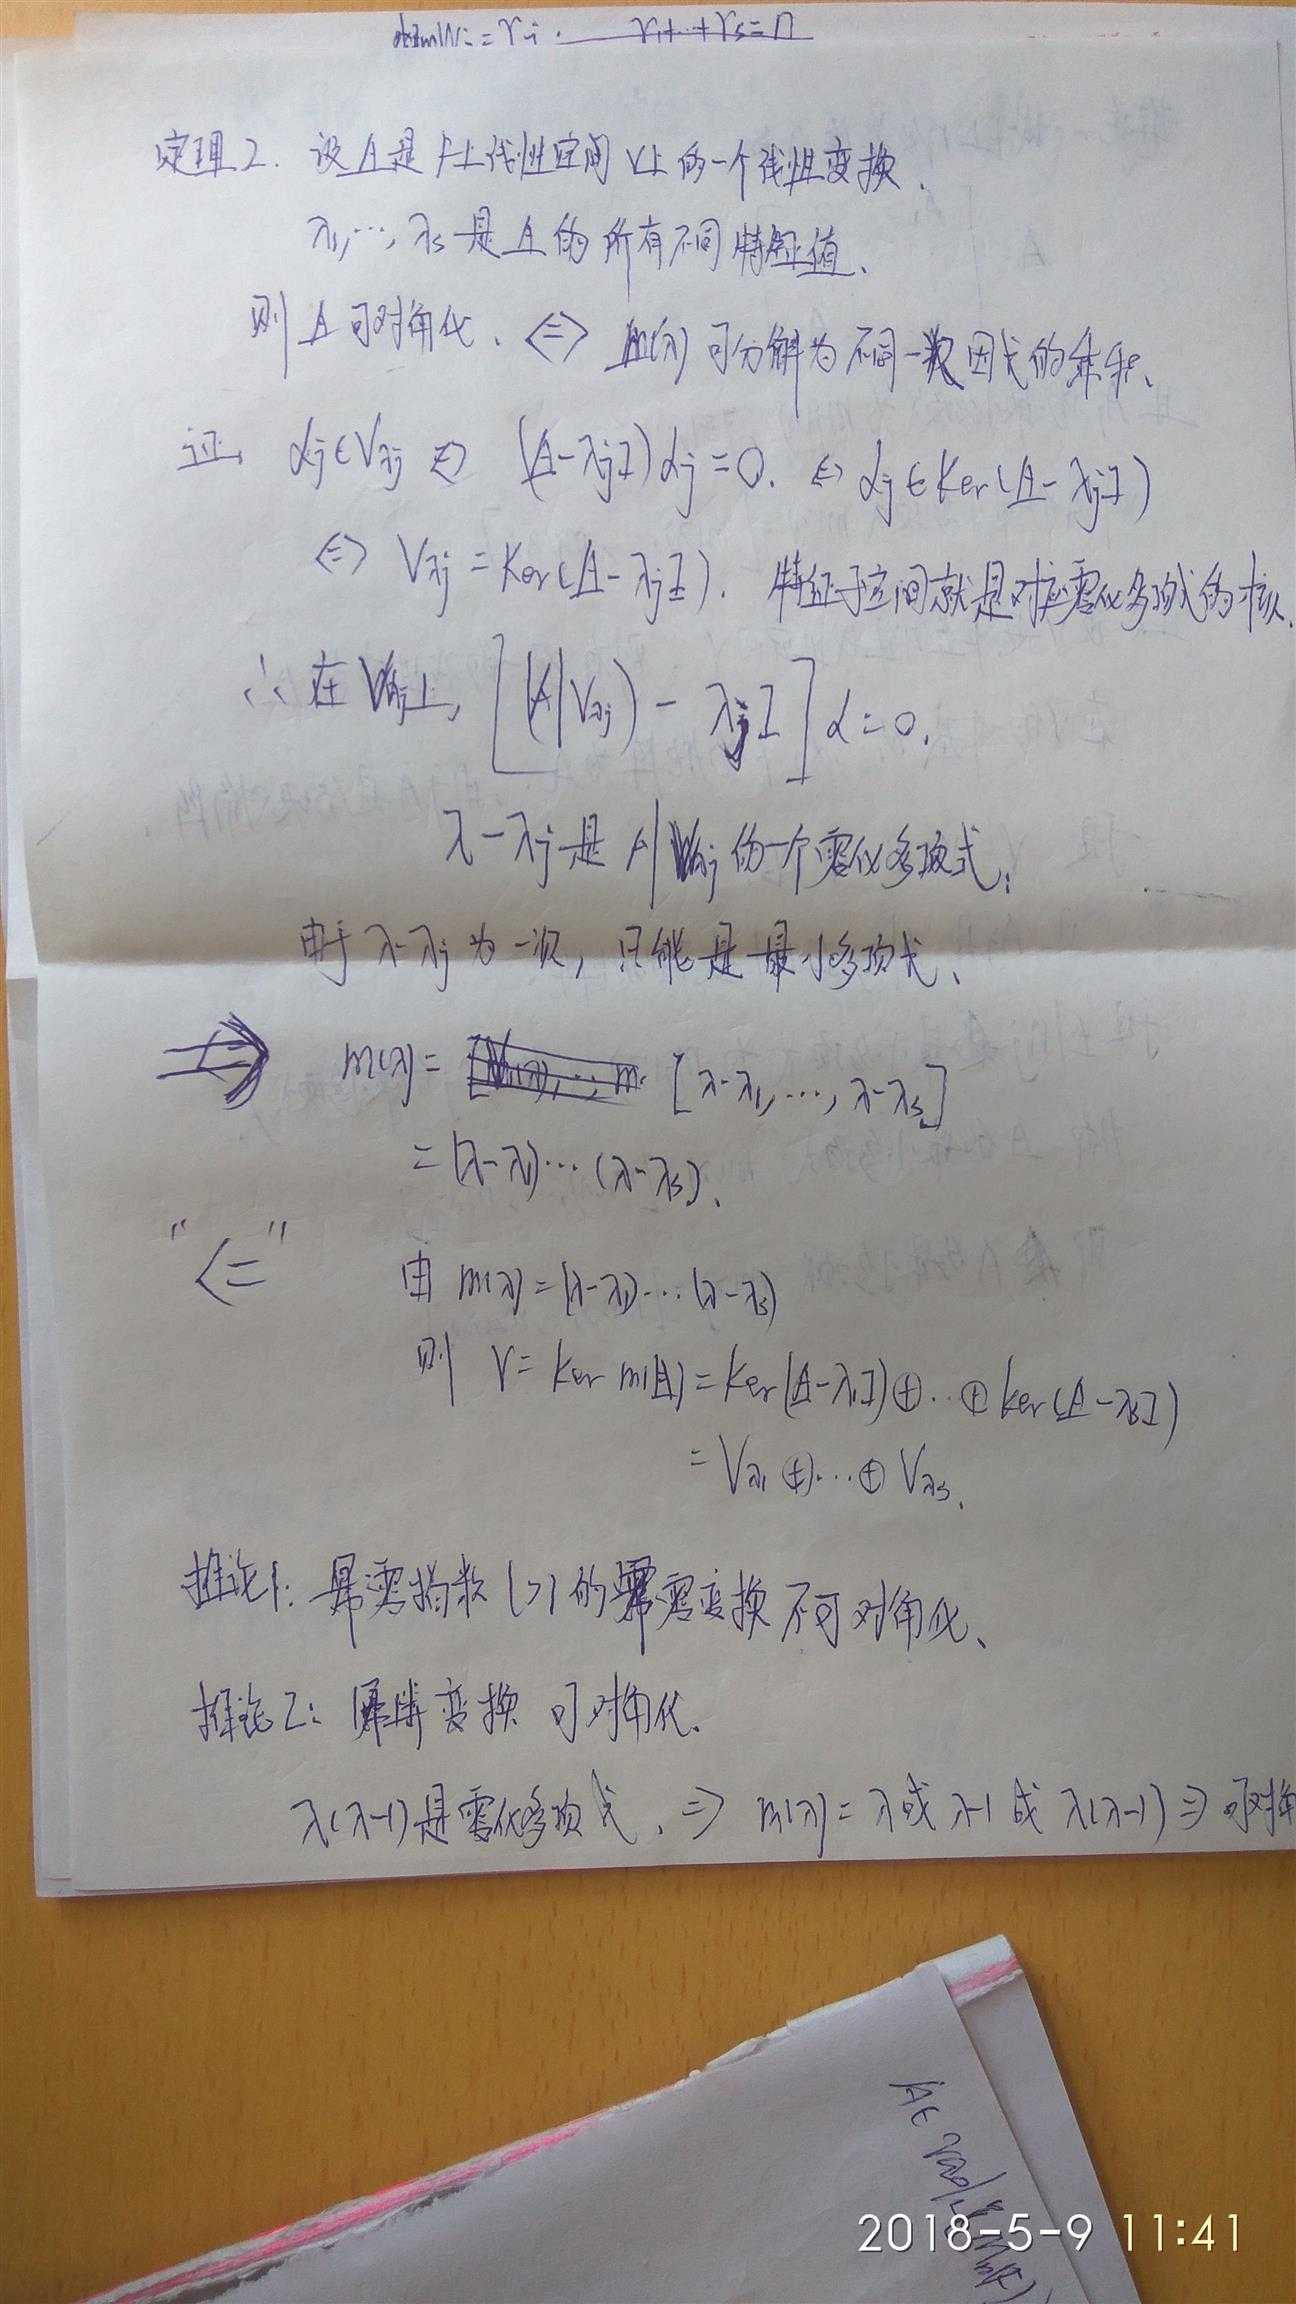 dimWi = ri . r1+…+rs = n
定理2. 设A是F上线性空间V上的一个线性变换.
λ1,…,λs是A的所有不同特征值.
则A可对角化. ⇔ m(λ)可分解为不同一次因式的乘积.
证. αj∈Vλj ⇔ (A-λjI)αj=0. ⇔ αj∈Ker(A-λjI)
⇔ Vλj = Ker(A-λjI). 特征子空间就是对应零化多项式的核.
∴在Vλj上, [(A|Vλj) - λjI]α=0.
λ-λj是A|Vλj的一个零化多项式;
由于λ-λj为一次, 只能是最小多项式.
⇒ m(λ) = [λ-λ1,…,λ-λs]
= (λ-λ1)…(λ-λs).
"⇐" 由m(λ)=(λ-λ1)…(λ-λs)
则 V = Ker m(A) = Ker(A-λ1I)⊕…⊕Ker(A-λsI)
= Vλ1⊕…⊕Vλs.
推论1: 幂零指数l>1的幂零变换不可对角化.
推论2: 幂等变换可对角化.
λ(λ-1)是零化多项式. ⇒ m(λ)=λ或λ-1或λ(λ-1)⇒可对角
A∈
2018-5-9 11:41